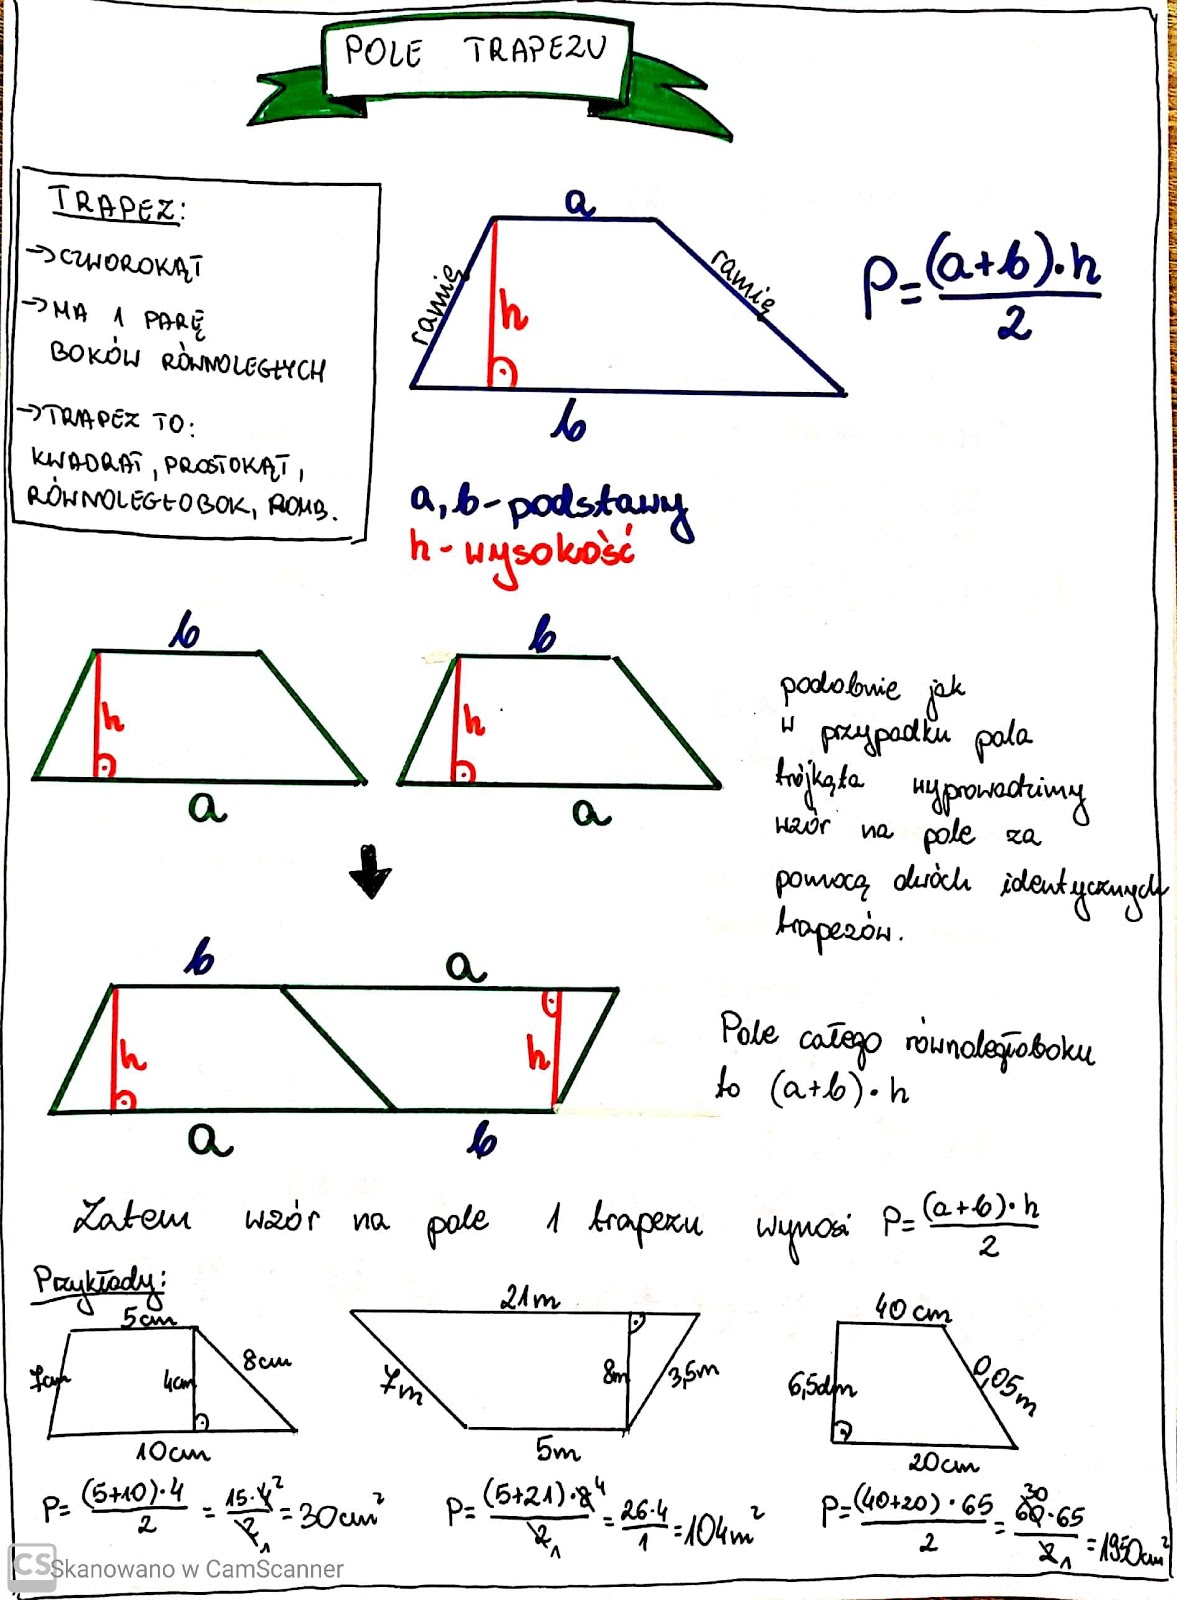 POLE TRAPEZU
TRAPEZ:
→CZWOROKĄT
→MA 1 PARĘ
BOKÓW RÓWNOLEGŁYCH
→TRAPEZ TO:
KWADRAT, PROSTOKĄT,
RÓWNOLEGŁOBOK, ROMB.
a
ramię
h
ramię
b
P=(a+b)·h/2
a, b - podstawy
h - wysokość
b
h
a
b
h
a
podobnie jak
w przypadku pola
trójkąta wyprowadzimy
wzór na pole za
pomocą dwóch identycznych
trapezów.
b
a
h
h
a
b
Pole całego równoległoboku
to (a+b)·h
Zatem wzór na pole 1 trapezu wynosi P=(a+b)·h/2
Przykłady:
5cm
7cm
4cm
8cm
10cm
P=(5+10)·4/2=15·4²/2₁=30cm²
21m
7m
8m
3,5m
5m
P=(5+21)·8⁴/2₁=26·4/1=104m²
40cm
6,5dm
0,05m
20cm
P=(40+20)·65/2=60³⁰·65/2₁=1950cm²
CS Skanowano w CamScanner